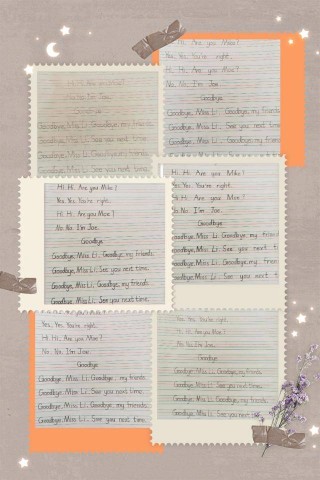 Hi. Hi. Are you Mike?
Yes. Yes. You're right.
Hi. Hi. Are you Moe?
No. No. I'm Joe.
Goodbye
Goodbye, Miss Li. Goodbye, my friends.
Goodbye, Miss Li. See you next time.
Goodbye, Miss Li. Goodbye, my friends.
Hi. Hi. Are you Mike?
No. No. I'm Joe.
Goodbye
Goodbye, Miss Li. Goodbye, my friends.
Goodbye, Miss Li. See you next time.
Goodbye, Miss Li. Goodbye, my friends.
Goodbye, Miss Li. See you next time.
Hi. Hi. Are you Mike?
Yes. Yes. You're right.
Hi. Hi. Are you Moe?
No. No. I'm Joe.
Goodbye
Goodbye, Miss Li. Goodbye, my friends.
Goodbye, Miss Li. See you next time.
Goodbye, Miss Li. Goodbye, my friends.
Goodbye, Miss Li. See you next time.
Hi. Hi. Are you Mike?
Yes. Yes. You're right.
Hi. Hi. Are you Moe?
No. No. I'm Joe.
Goodbye
Goodbye, Miss Li. Goodbye, my
Goodbye, Miss Li. See you next
Goodbye, Miss Li. Goodbye, my
Goodbye, Miss Li. See you next
Yes. Yes. You're right.
Hi. Hi. Are you Moe?
No. No. I'm Joe.
Goodbye
Goodbye, Miss Li. Goodbye, my friends.
Goodbye, Miss Li. See you next time.
Goodbye, Miss Li. Goodbye, my friends.
Goodbye, Miss Li. See you next time.
Yes. Yes. You're right.
Hi. Hi. Are you Moe?
No. No. I'm Joe.
Goodbye
Goodbye, Miss Li. Goodbye, my friends.
Goodbye, Miss Li. See you next time.
Goodbye, Miss Li. Goodbye, my friends.
Goodbye, Miss Li. See you next